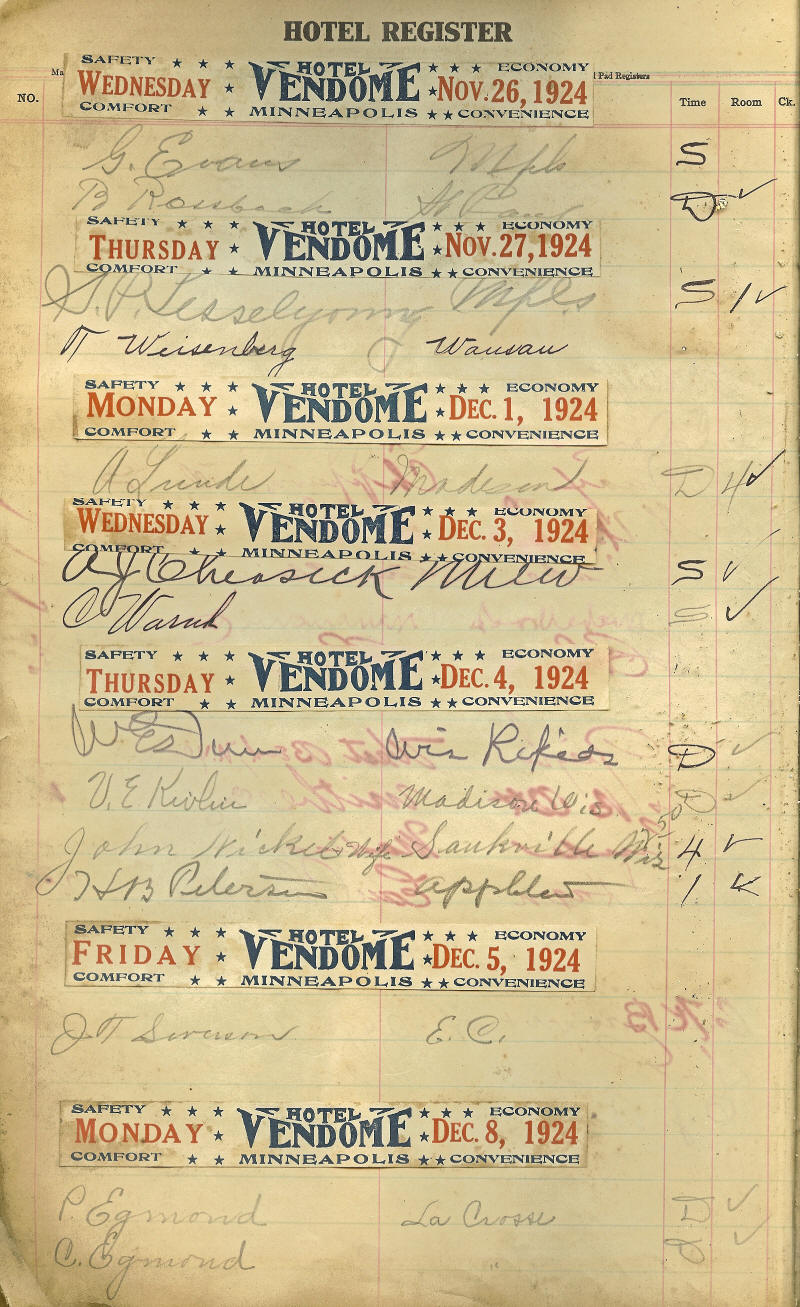 HOTEL REGISTER
Ma
Pad Registers
NO. Time Room Ck.
SAFETY ★ ★ ★ HOTEL ★ ★ ★ ECONOMY
WEDNESDAY ★ VENDOME ★ NOV. 26, 1924
COMFORT ★ ★ MINNEAPOLIS ★ ★ CONVENIENCE
G. Evans Mpls S
B Rossbach St Paul D ✓
SAFETY ★ ★ ★ HOTEL ★ ★ ★ ECONOMY
THURSDAY ★ VENDOME ★ NOV. 27, 1924
COMFORT ★ ★ MINNEAPOLIS ★ ★ CONVENIENCE
Mpls S 1 ✓
Weisenberg Wausau
SAFETY ★ ★ ★ HOTEL ★ ★ ★ ECONOMY
MONDAY ★ VENDOME ★ DEC. 1, 1924
COMFORT ★ ★ MINNEAPOLIS ★ ★ CONVENIENCE
A Lunde Madison D 4 ✓
SAFETY ★ ★ ★ HOTEL ★ ★ ★ ECONOMY
WEDNESDAY ★ VENDOME ★ DEC. 3, 1924
COMFORT ★ ★ MINNEAPOLIS ★ ★ CONVENIENCE
A J Milw S ✓
C S ✓
SAFETY ★ ★ ★ HOTEL ★ ★ ★ ECONOMY
THURSDAY ★ VENDOME ★ DEC. 4, 1924
COMFORT ★ ★ MINNEAPOLIS ★ ★ CONVENIENCE
Wis Rapids D ✓
V. E Madison Wis ✓
John Nickel & Wife Saukville Wis 4 ✓
H B Petersen 1
SAFETY ★ ★ ★ HOTEL ★ ★ ★ ECONOMY
FRIDAY ★ VENDOME ★ DEC. 5, 1924
COMFORT ★ ★ MINNEAPOLIS ★ ★ CONVENIENCE
Severson E. C.
SAFETY ★ ★ ★ HOTEL ★ ★ ★ ECONOMY
MONDAY ★ VENDOME ★ DEC. 8, 1924
COMFORT ★ ★ MINNEAPOLIS ★ ★ CONVENIENCE
P. Egmond La Crosse D ✓
C. Egmond ✓